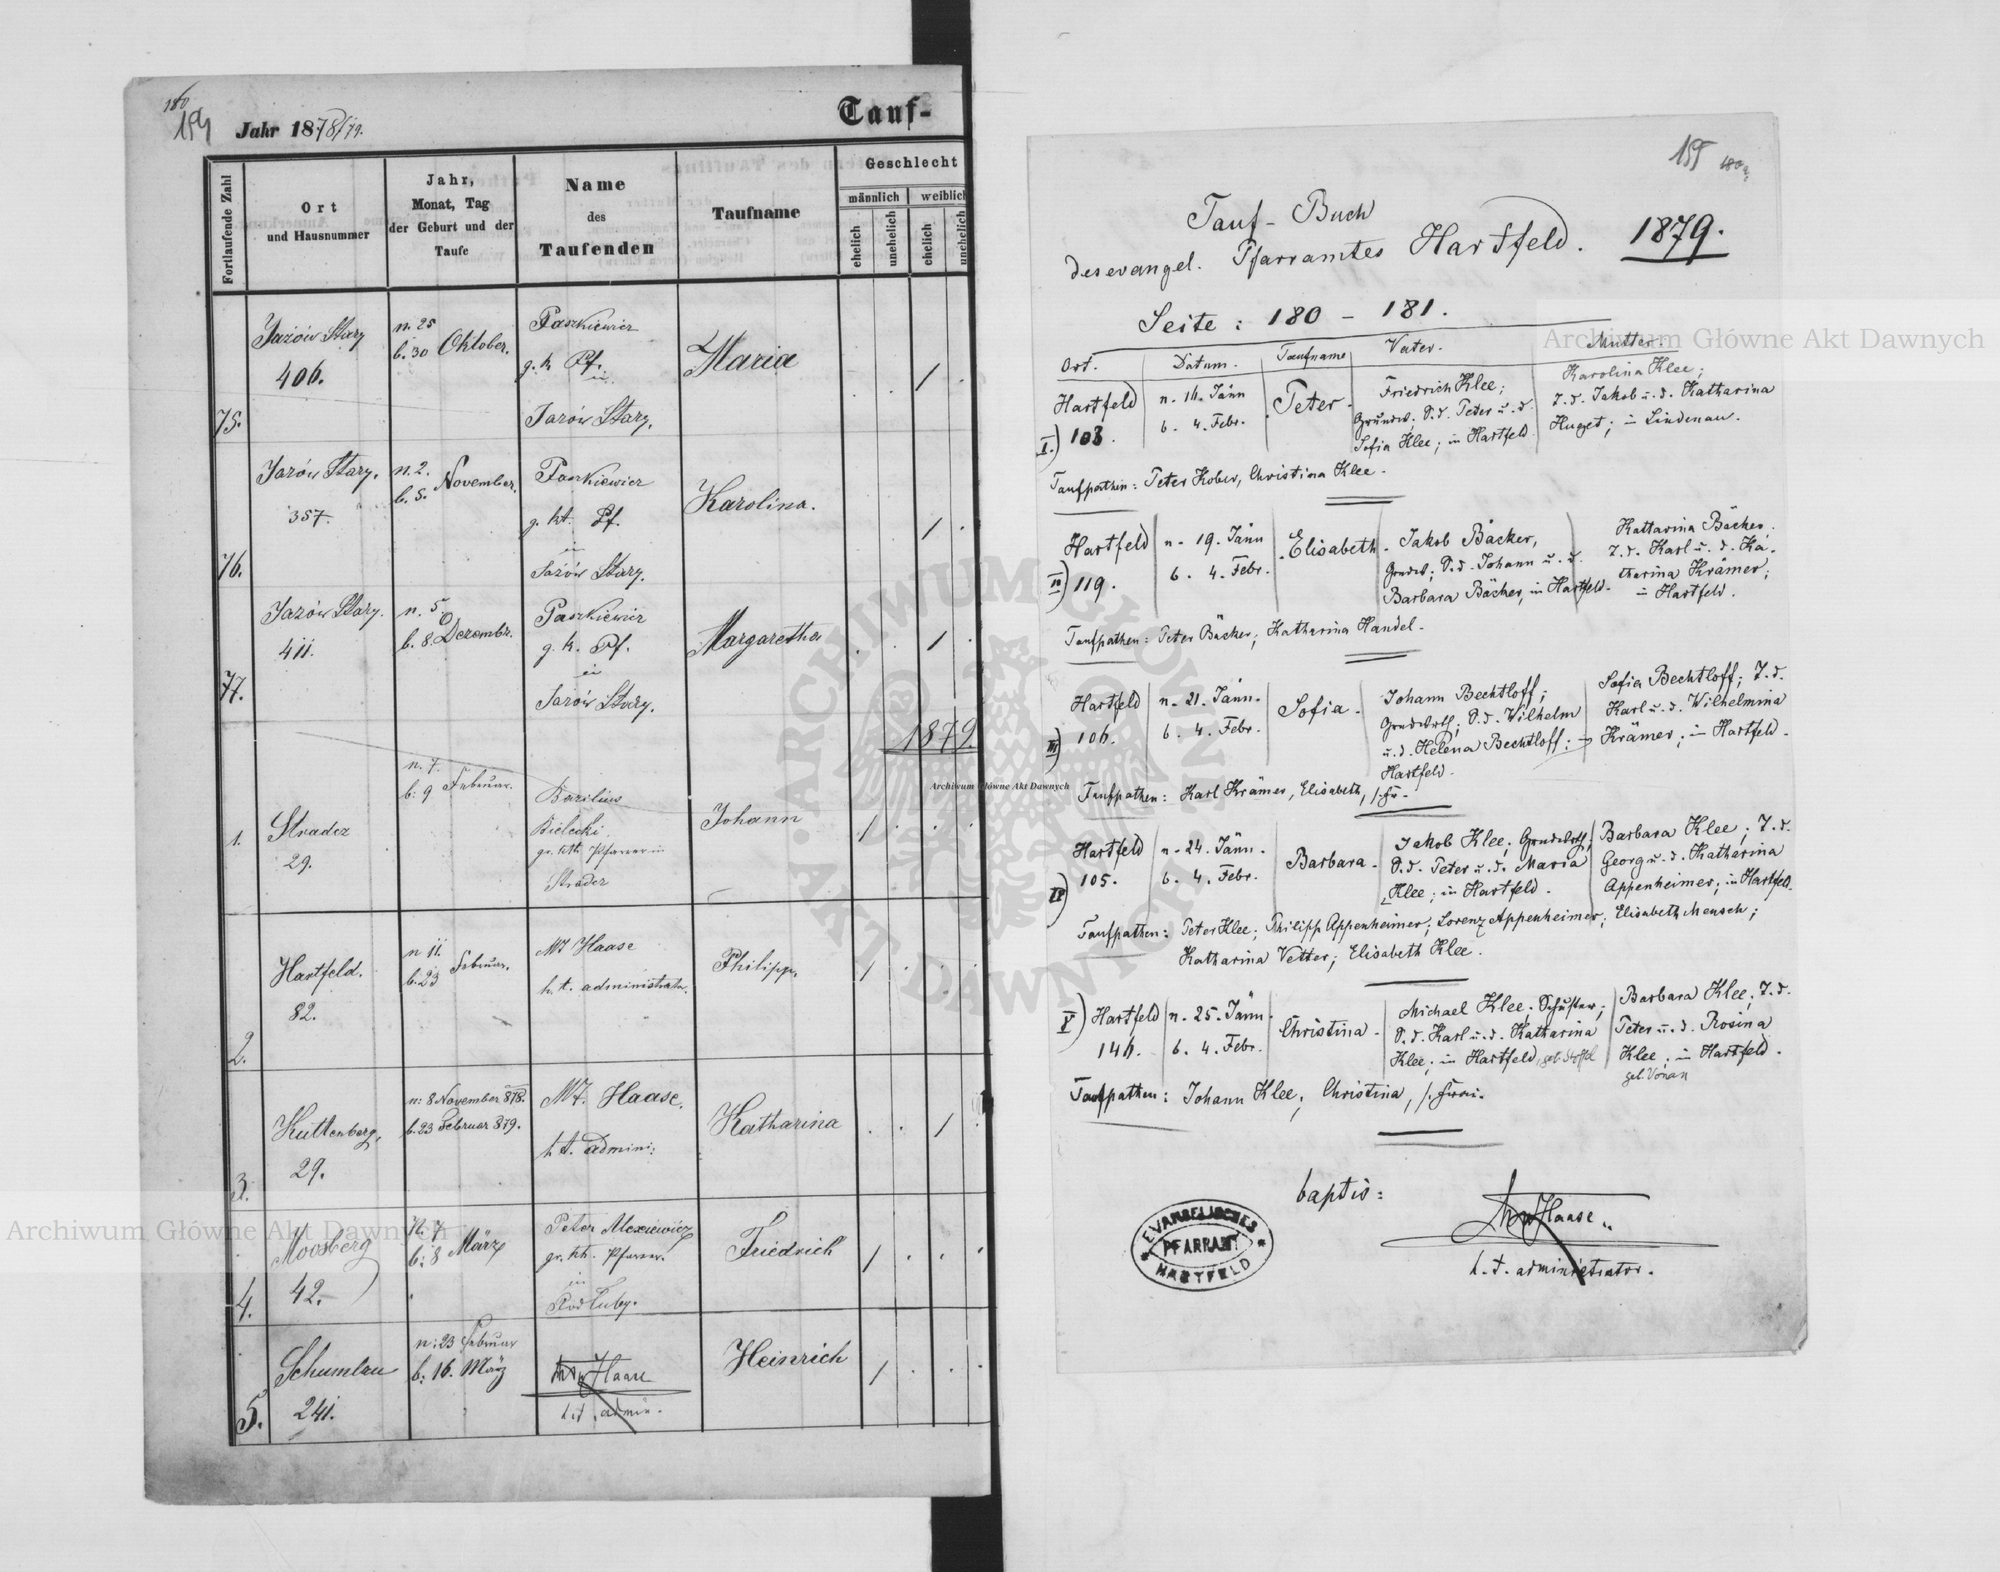 180
154
Jahr 1878/79.
Tauf-
Fortlaufende Zahl
Ort
und Hausnummer
Jahr,
Monat, Tag
der Geburt und der
Taufe
Name
des
Taufenden
Taufname
Geschlecht
männlich
weiblich
ehelich
unehelich
ehelich
unehelich
75.
Jazów Stary
406.
n. 25
b. 30 Oktober.
Paszkiewicz
g. k. Pf.
in
Jazów Stary.
Maria
76.
Jazów Stary.
357.
n. 2.
b. 5. November.
Paszkiewicz
g. kt. Pf.
in
Jazów Stary.
Karolina.
77.
Jazów Stary.
411.
n. 5
b. 8. Dezembr.
Paszkiewicz
g. k. Pf.
in
Jazów Stary.
Margaretha
1879.
1.
Stradcz
29.
n. 7.
b. 9 Februar.
Basilius
Bielecki.
gr. kth. Pfarrer in
Stradcz
Johann
2.
Hartfeld.
82.
n 11.
b. 23 Februar.
Haase
h. t. administrator.
Philipp.
3.
Kuttenberg.
29.
n: 8 November 878.
b. 23 Februar 879.
Haase.
h t. admini:
Katharina
4.
Moosberg
42.
n. 7
b: 8 März
Peter Alexiewicz
gr. kt. Pfarrer.
in
Rodluby.
Friedrich
5.
Schumlau
241.
n: 23 Februar
b: 16. März
Haase
h. t. admin.
Heinrich
155 180a.
Tauf-Buch
des evangel. Pfarramtes Hartfeld. 1879.
Seite: 180 - 181.
Ort. Datum. Taufname Vater. Mutter.
I.) Hartfeld
103.
n. 16. Jänn
b. 4. Febr.
Peter
Friedrich Klee;
Grundw. S. d. Peter u. d.
Sofia Klee; in Hartfeld.
Karolina Klee;
T. d. Jakob u. d. Katharina
Huget; in Lindenau.
Taufpathen: Peter Kober, Christina Klee.
II) Hartfeld
119.
n. 19. Jänn
b. 4. Febr.
Elisabeth
Jakob Bäcker,
Grundw; S. d. Johann u. d.
Barbara Bäcker, in Hartfeld.
Katharina Bäcker;
T. d. Karl u. d. Ka-
tharina Krämer;
in Hartfeld.
Taufpathen: Peter Bäcker; Katharina Handel.
III) Hartfeld
106.
n. 21. Jänn.
b. 4. Febr.
Sofia
Johann Bechtloff;
Grundwrth; S. d. Wilhelm
u. d. Helena Bechtloff; in
Hartfeld.
Sofia Bechtloff; T. d.
Karl u. d. Wilhelmina
Krämer; in Hartfeld.
Taufpathen: Karl Krämer, Elisabeth,
IV) Hartfeld
105.
n. 24. Jänn.
b. 4. Febr.
Barbara
Jakob Klee; Grundwrth;
S. d. Peter u. d. Maria
Klee; in Hartfeld.
Barbara Klee; T. d.
Georg u. d. Katharina
Appenheimer; in Hartfeld.
Taufpathen: Peter Klee; Philipp Appenheimer; Lorenz Appenheimer; Elisabeth Mensch;
Katharina Vetter; Elisabeth Klee.
V) Hartfeld
146.
n. 25. Jänn.
b. 4. Febr.
Christina
Michael Klee, Schuster;
S. d. Karl u. d. Katharina
Klee; in Hartfeld, geb. Stoffel
Barbara Klee; T. d.
Peter u. d. Rosina
Klee; in Hartfeld.
geb. Vonau
Taufpathen: Johann Klee; Christina,
baptis:
Haase
h. t. administrator.
EVANGELISCHES
PFARRAMT
HARTFELD
ARCHIWUM GŁÓWNE AKT DAWNYCH
Archiwum Główne Akt Dawnych
Archiwum Główne Akt Dawnych
Archiwum Główne Akt Dawnych